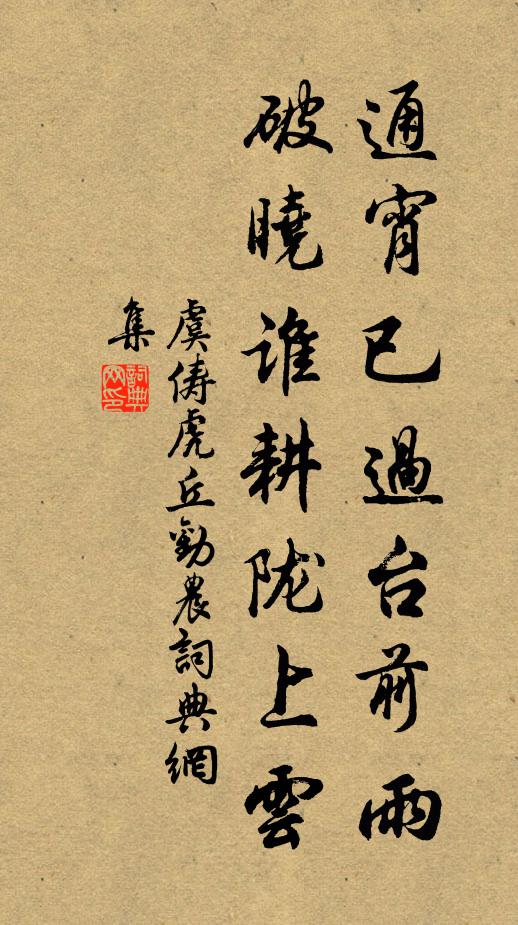 通宵已過台前雨
破曉谁耕陇上雲
虞俦虎丘勸農詞典網
集
詞典網印